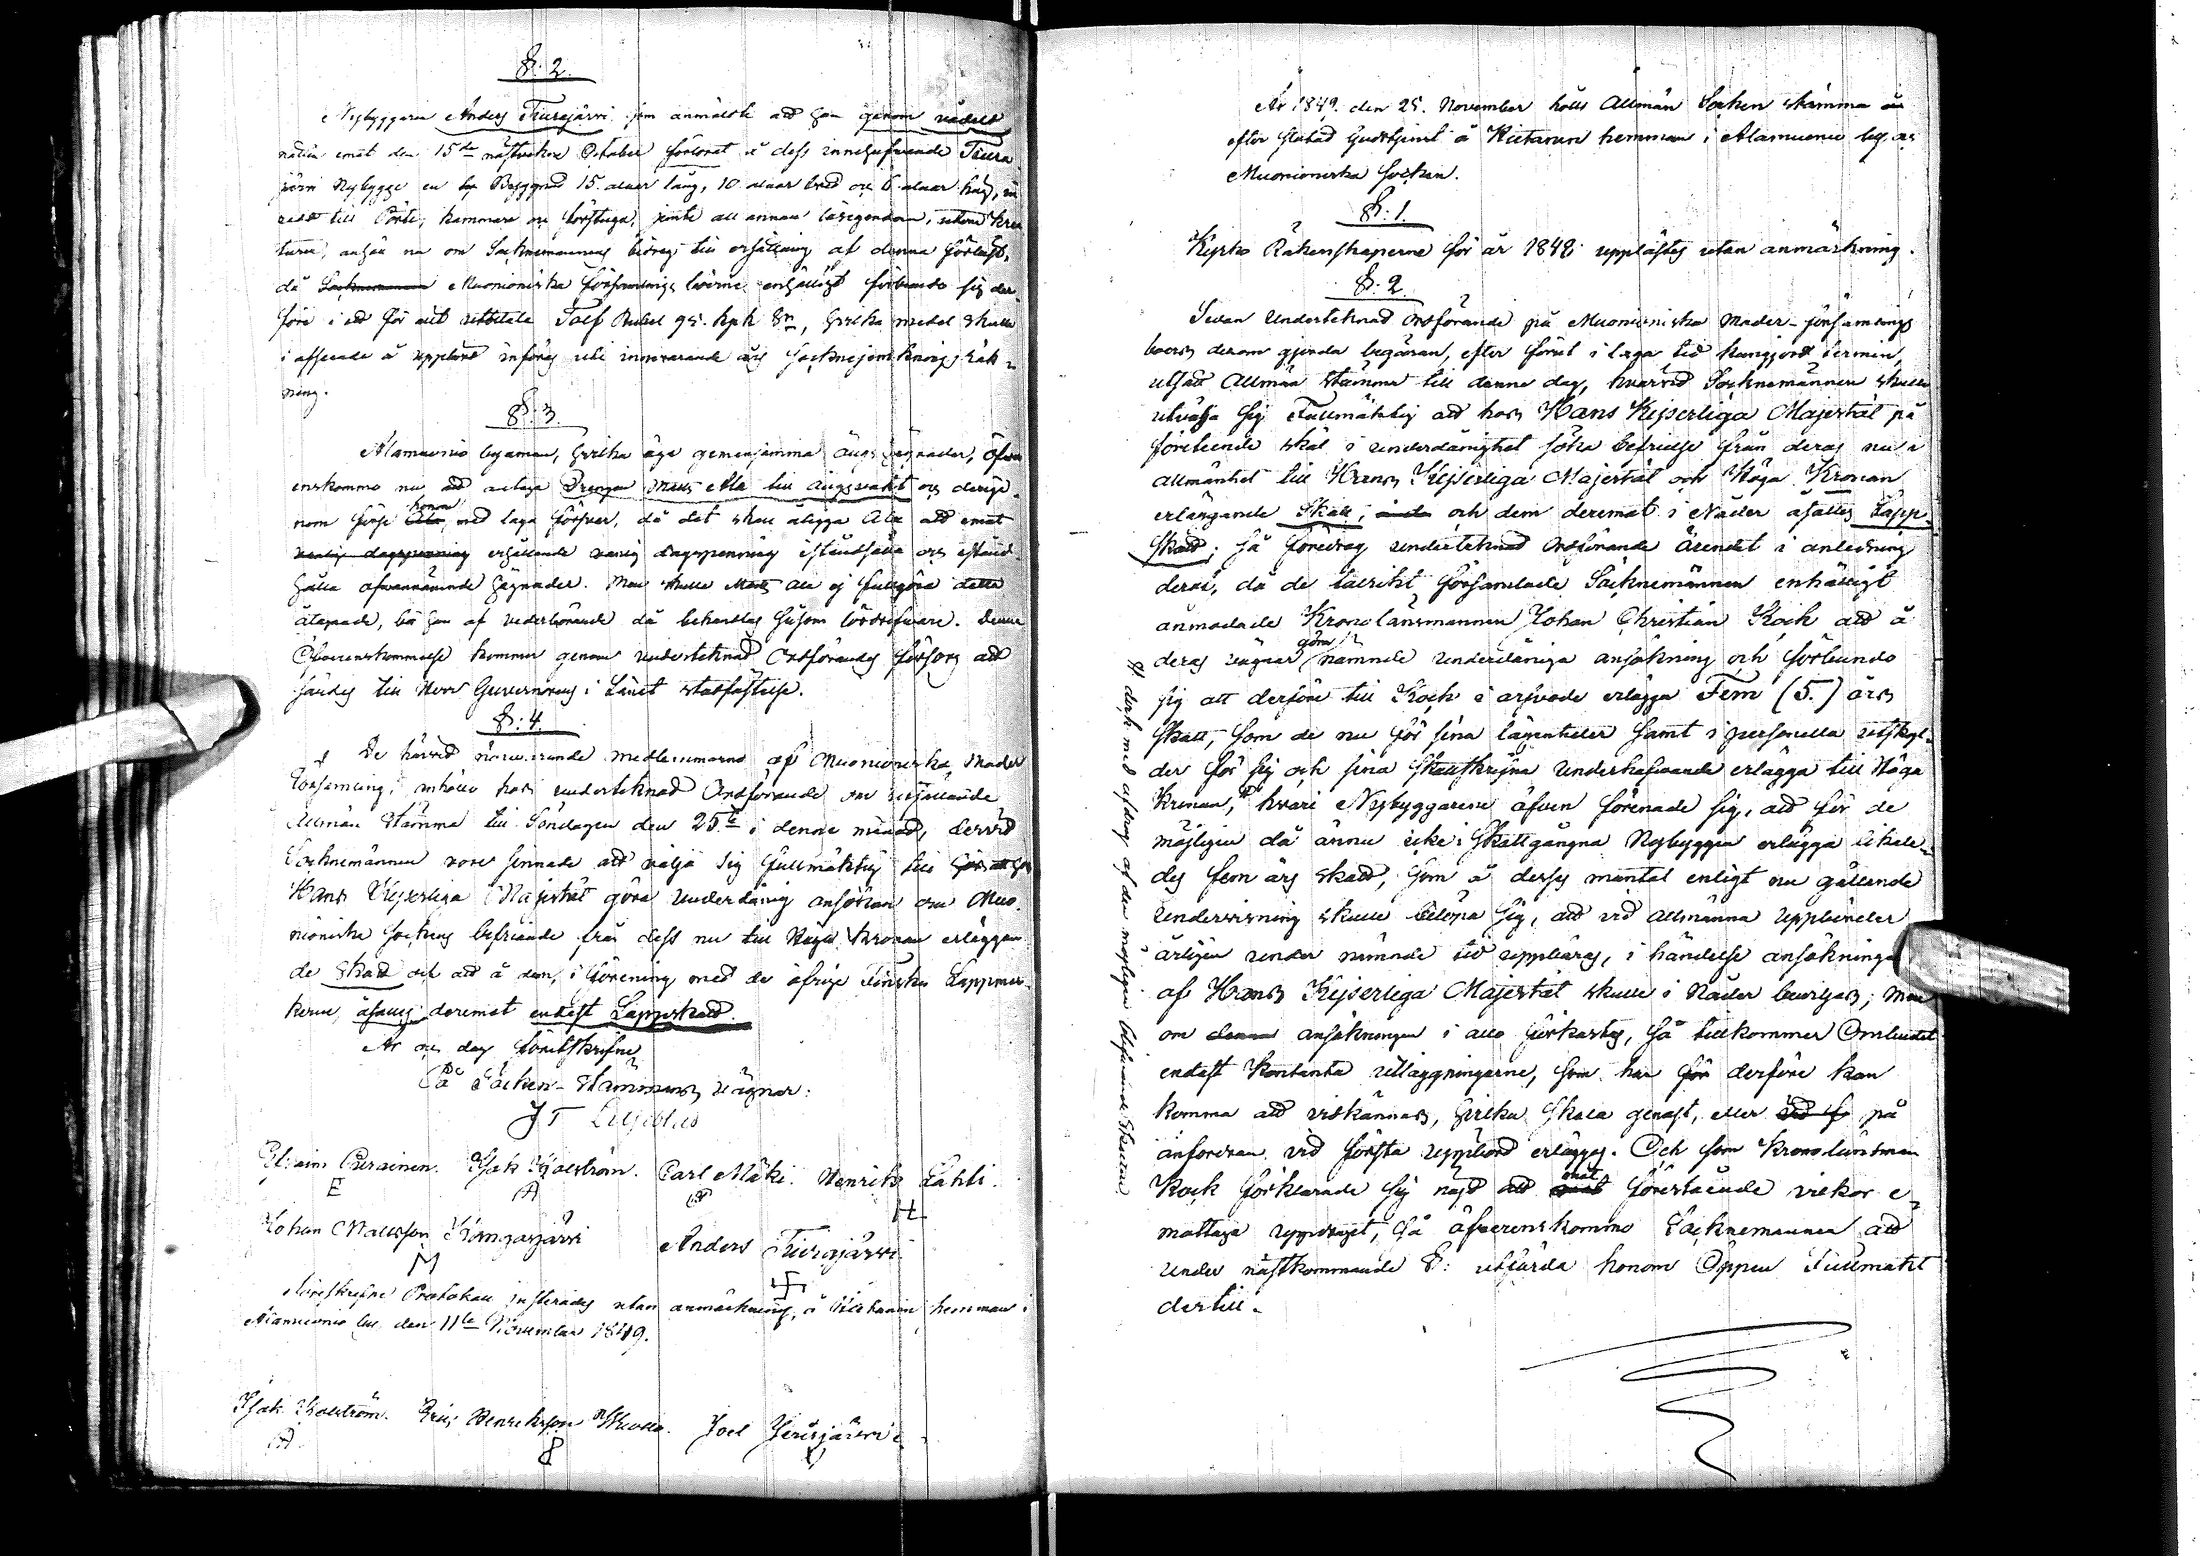 §: 2.
Nybyggaren Anders Tiurajärvi som anmälde att han genom vådeld
natten emot den 15de nästvekne October förlorat å dess innehafvande Tiura
järvi Nybygge en Byggnad 15. alnar lång, 10. alnar bred och 6. alnar hög, in
redd till Pörte, kammare och förstuga, jemte all annan lösegendom, utom krea
turen, anhöll nu om Socknemännens bidrag till ersättning af denne förlust,
då Socknemännen Muonioniska församlings boerne enhälligt förbundo sig der
före i ett för allt utbetala Tolf Rubel 95. kpk Sr, hvilka medel skulle
i afseende å uppbörd införas uti innevarande års Socknejemknings räk-
ning.
§: 3.
Alamuonio byamän, hvilka äga gemensamma ängs hägnader, öfver
enskommo nu att antaga Drengen Matts Ala till ängsvakt och derige-
nom förse honom med laga försvar, då det skall åligga Ala att emot
vanlig dagspenning erhållande vanlig dagspenning iståndsätta och istånd
hålla ofvannämnde hägnader. Men skulle Matts Ala ej fullgöra detta
åtagande, bör han af vederbörande då behandlas såsom lösdrifvare. Denna
Öfverenskommelse kommer genom undertecknad Ordförandes försorg att
sändas till Herr Guvernörens i Länet stadfästelse.
§: 4.
De härvid närvarande medlemmarne af Muonioniska Moder
församling, anhöllo hos undertecknad Ordförande om utsättande
Allmän Stämma till Söndagen den 25te i denne månad, dervid
Socknemännen vore sinnade att välja sig fullmäktig till för att hos
Hans Kejserliga Majestät göra underdånig ansökan om Muo-
nioniska sockens befriande från dess nu till Höga Kronan erläggan
de skatt och att å dem, i förening med de öfrige Finska Lappmar-
kerne, åsättes deremot endast Lappskatt.
År och dag föreskrifne
På Socken-Stämmans vägnar:
J F Liljeblad
Ephraim Purainen. Isak Hjolström. Carl Mäki. Henrik Lahti.
E
H
Johan Mattsson Kangasjärvi Anders Tiurajärvi
M
Föreskrifne Protokoll justerades utan anmärkning, å Kiutanin hemman i
Alamuonio by, den 11te November 1849.
Isak Hjolström. Eric Henriksson Joel Jerisjärvi
År 1849. den 25. November hölls Allmän Socken stämma
efter slutad Gudstjenst å Kiutanin hemman i Alamuonio by och
Muonioniska Socken.
§: 1.
Kyrko Räkenskaperne för år 1848 upplästes utan anmärkning.
§: 2.
Sedan Undertecknad Ordförande på Muonioniska Moder-församlings
boers derom gjorda begäran, efter förut i laga tid kungjord termin,
utsatt Allmän stämma till denna dag, hvarvid Socknemännen skulle
utvälja sig Fullmäktig att hos Hans Kejserliga Majestät på
företeende skäl i underdånighet söka befrielse från deras nu i
allmänhet till Hans Kejserliga Majestät och Höga Kronan
erläggande Skatt, och dem deremot i Nåder åsättes Lapp-
skatt; så föredrog undertecknad Ordförande ärendet i anledning
deraf, då de talrikt församlade Socknemännen enhälligt
anmodade Kronolänsmannen Johan Christian Kock att å
deras vägnar göra nämnde underdåniga ansökning och förbundo
sig att derföre till Kock i arfvode erlägga Fem (5.) års
skatt, som de nu för sina lägenheter samt i personella utskyl-
der för sig och sina skattskrifna Underhafvande erlägga till Höga
Kronan, # hvari Nybyggarene äfven förenade sig, att för de
möjligen då ännu icke i Skatt gångna Nybyggen erlägga likale-
des fem års skatt, som å dess mantal enligt nu gällande
Undervisning skulle belöpa sig, att vid allmänna Uppbörder
årligen under nämnde tid uppbäras, i händelse ansökningen
af Hans Kejserliga Majestät skulle i Nåder beviljas; Men
om denna ansökningen i allo förkastas, så tillkommer Ombudet
endast kontanta utläggningarne, som han för derföre kan
komma att vidkännas, hvilka skola genast, eller vid på
anfordran vid första uppbörd erläggas. Och som Kronolänsman
Kock förklarade sig nöjd att emot förestående vilkor e-
mottaga uppdraget, så öfverenskommo Socknemännen att
under nästkommande §: utfärda honom Öppen Fullmakt
dertill.
# dock med afdrag af den möjligen